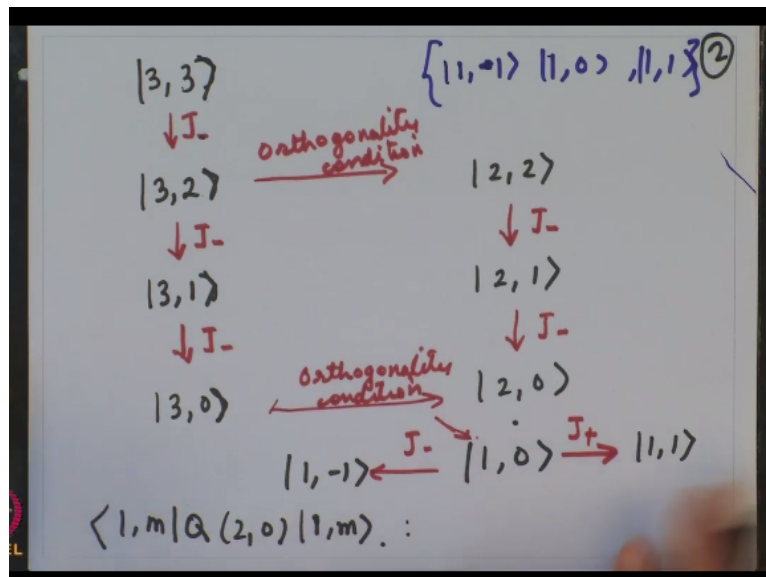 |3,3⟩
{|1,-1⟩ |1,0⟩ ,|1,1⟩} ②
↓J-
Orthogonality
condition
|3,2⟩ → |2,2⟩
↓J- ↓J-
|3,1⟩ |2,1⟩
↓J- ↓J-
Orthogonality
condition
|3,0⟩ → |2,0⟩
|1,-1⟩ ←J- |1,0⟩ J+→ |1,1⟩
⟨1,m|Q(2,0)|1,m⟩. :
EL